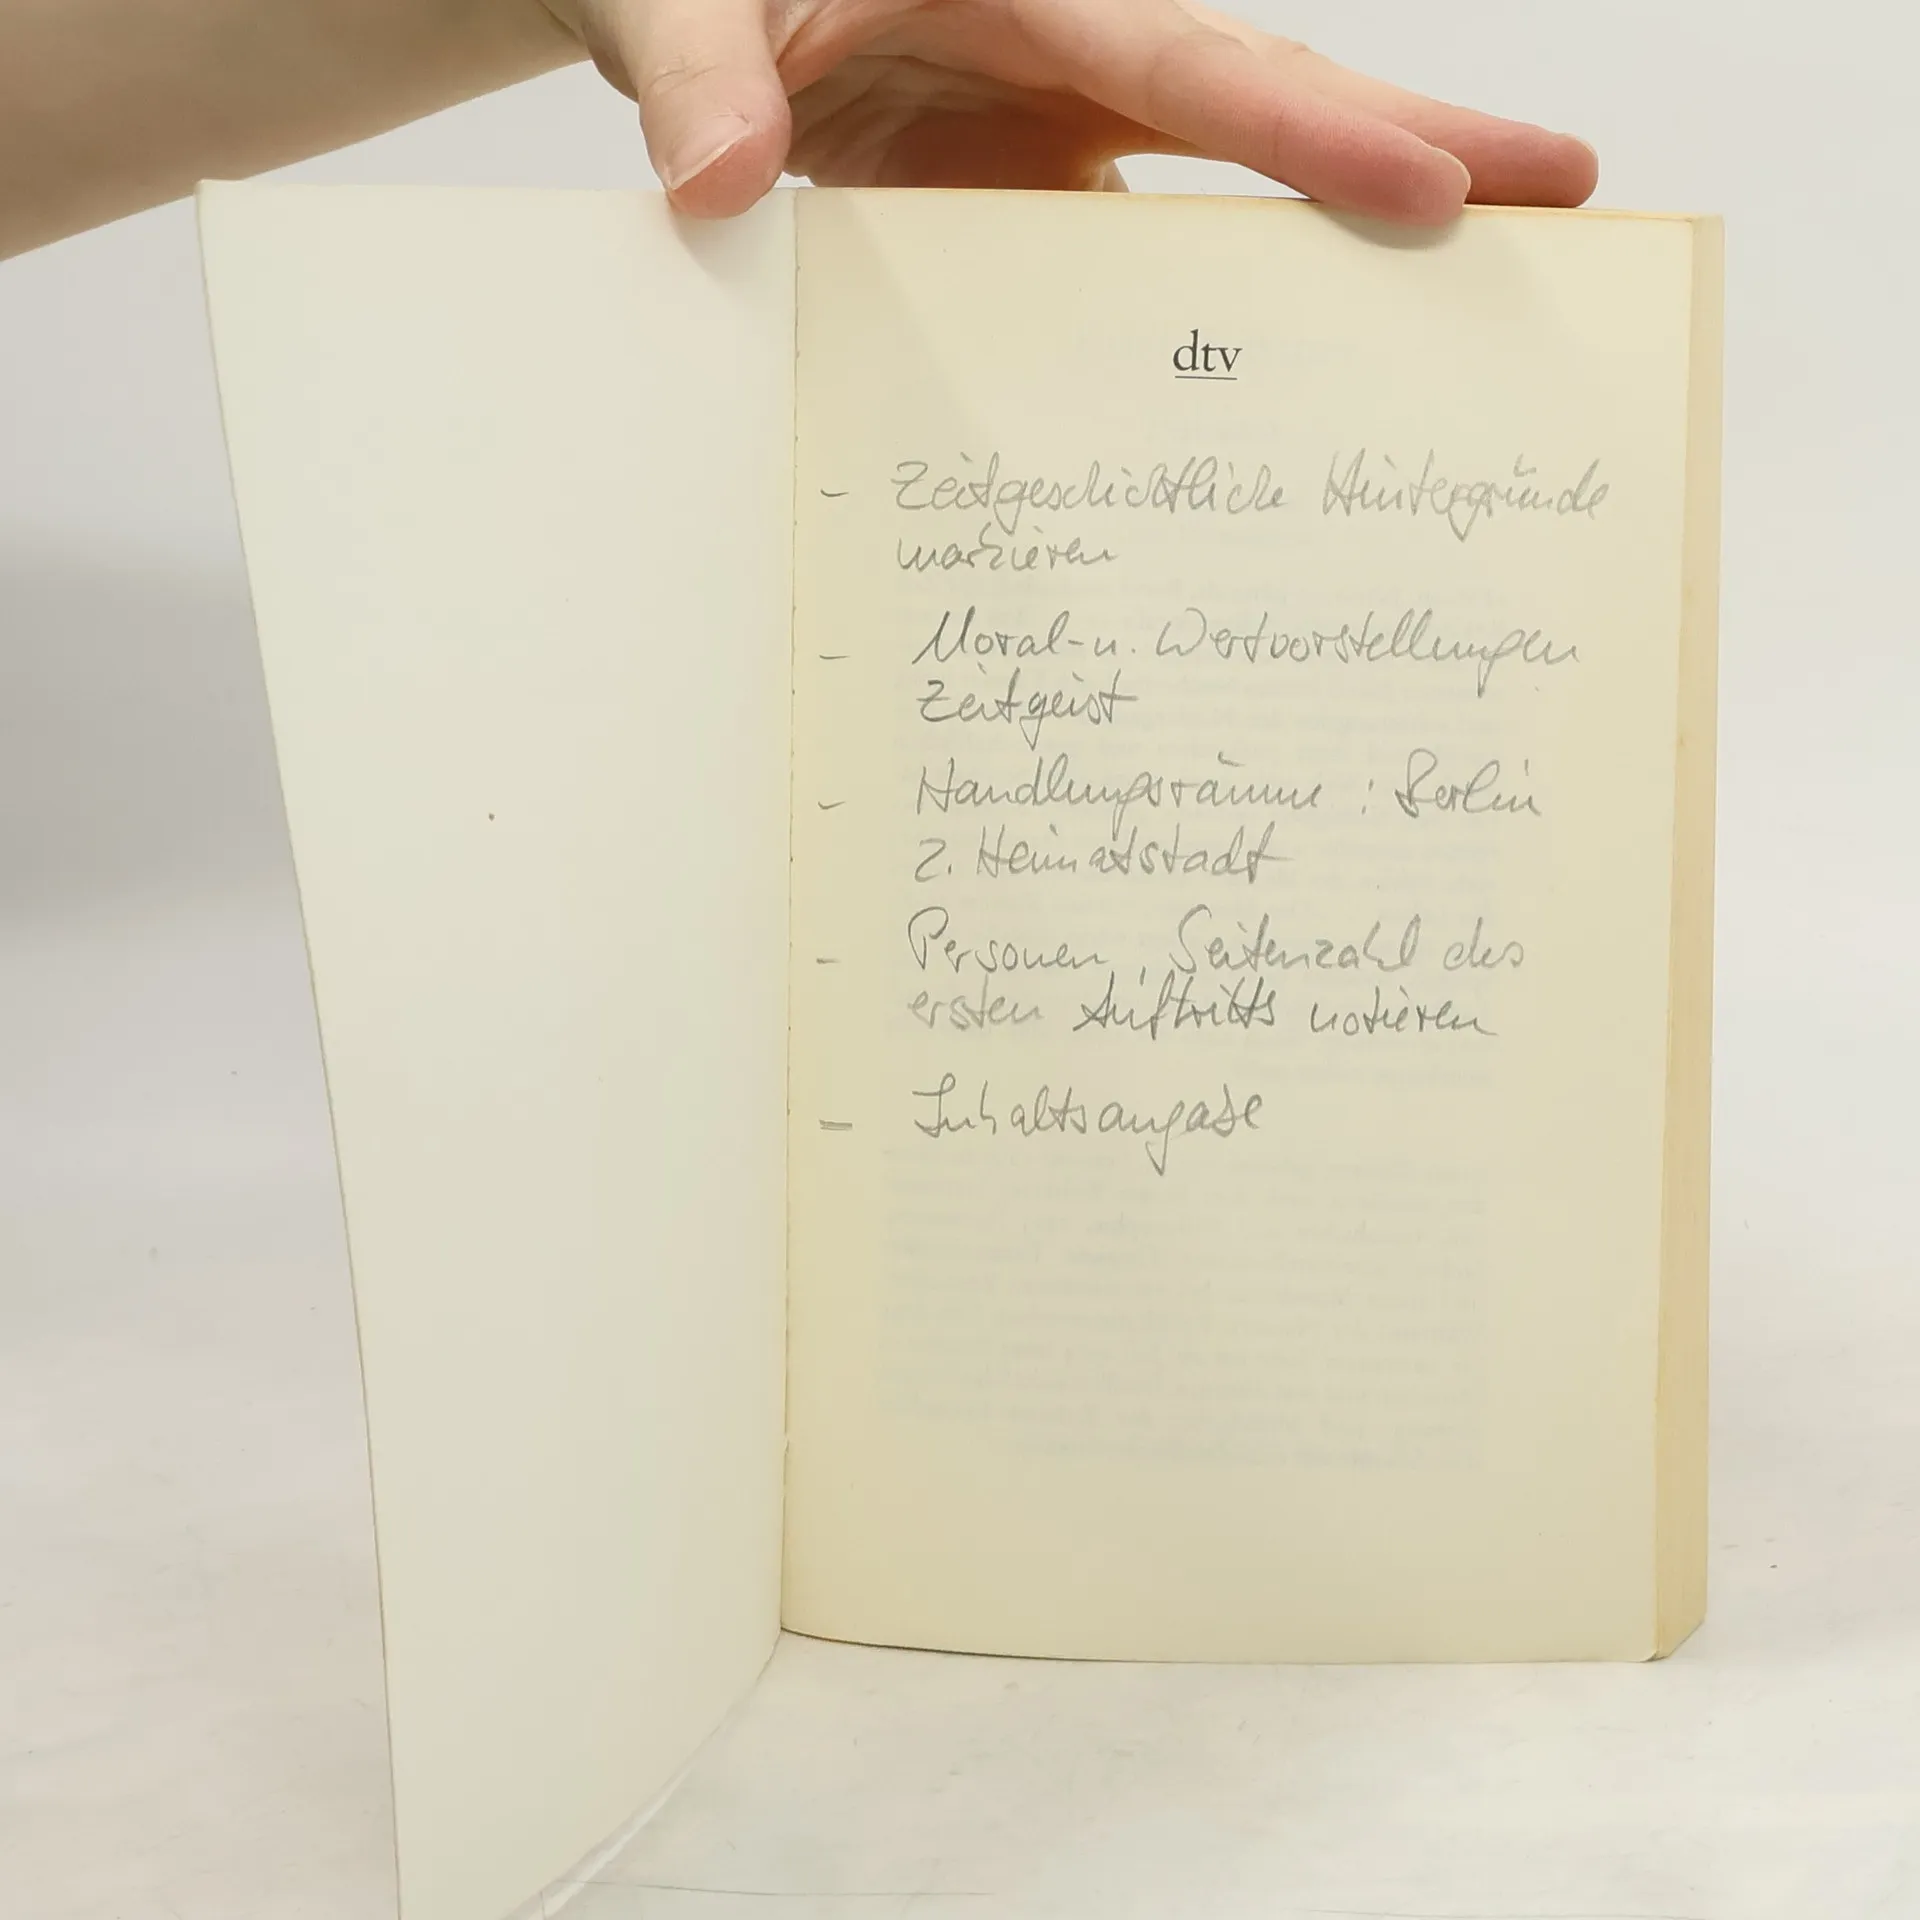 dtv
- Zeitgeschichtliche Hintergründe
markieren
- Moral- u. Wertvorstellungen
Zeitgeist
- Handlungsräume : Berlin
2. Heimatstadt
- Personen, Seitenzahl des
ersten Auftritts notieren
- Inhaltsangabe